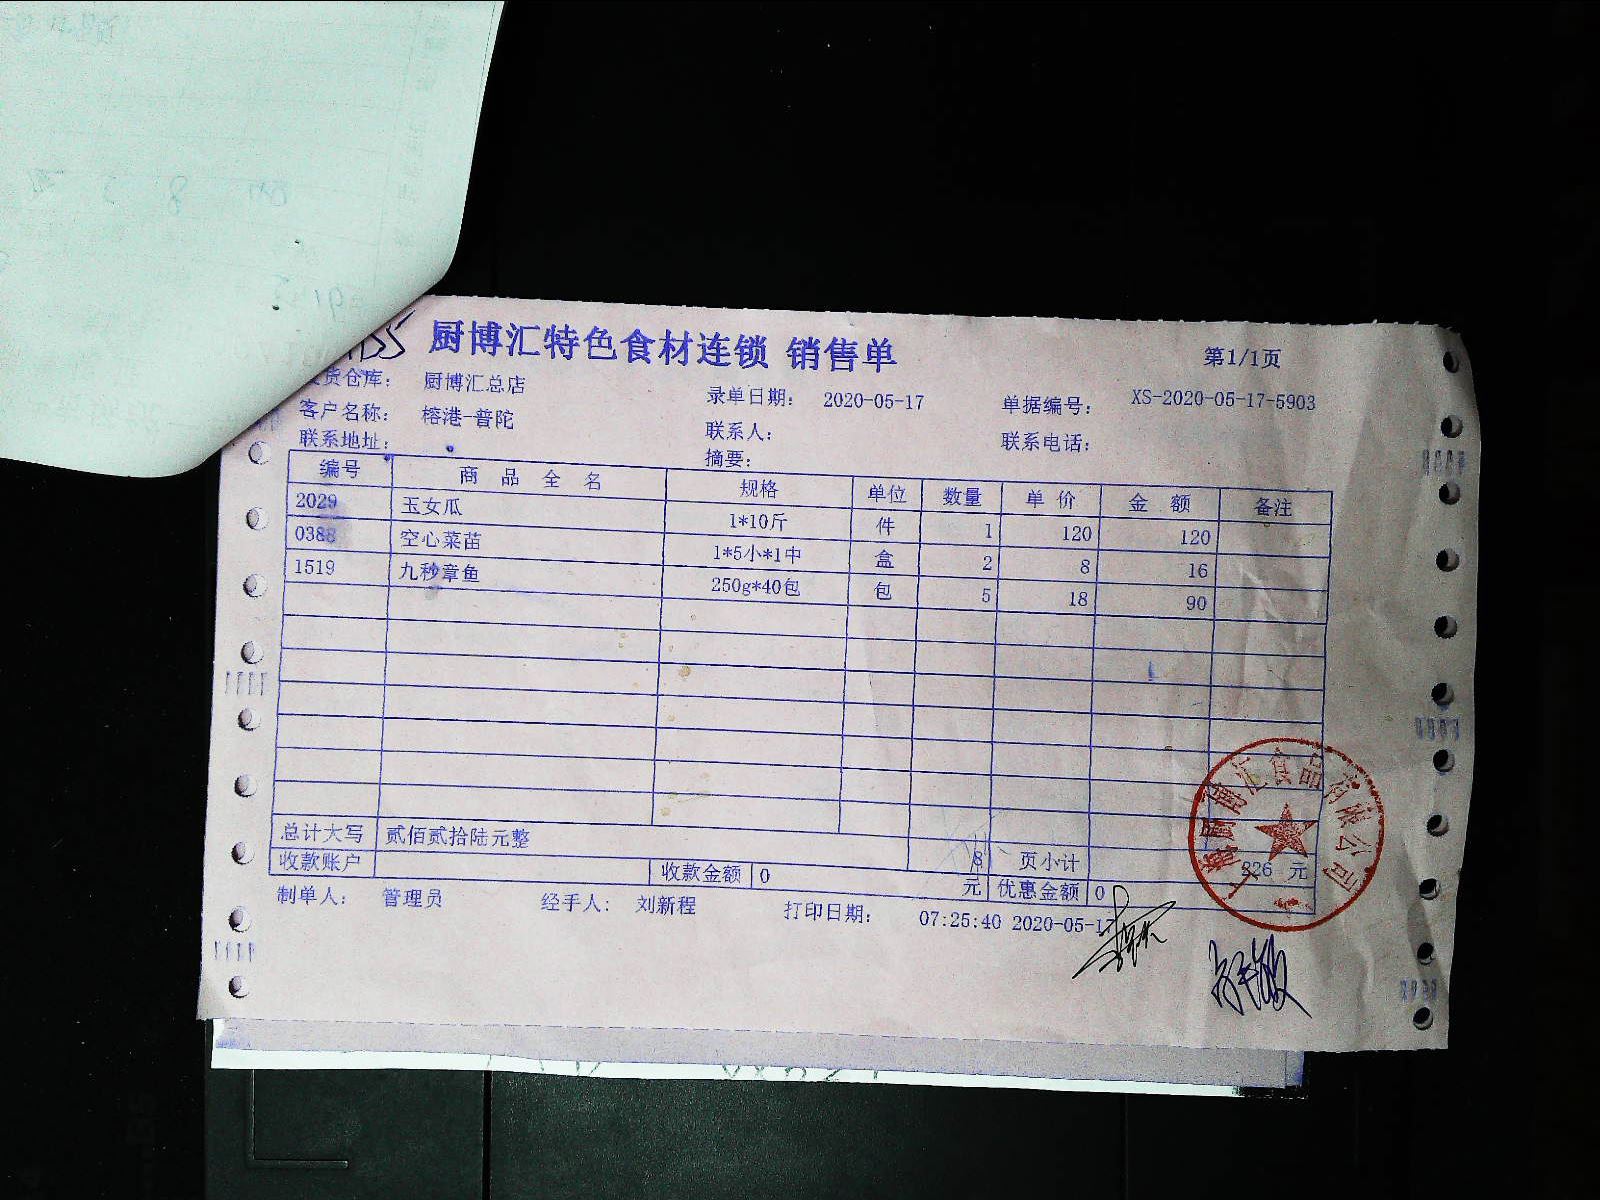 厨博汇特色食材连锁 销售单
第1/1页
货仓库： 厨博汇总店 录单日期： 2020-05-17 单据编号： XS-2020-05-17-5903
客户名称： 榕港-普陀 联系人： 联系电话：
联系地址： 摘要：
编号 商 品 全 名 规格 单位 数量 单 价 金 额 备注
2029 玉女瓜 1*10斤 件 1 120 120
0388 空心菜苗 1*5小*1中 盒 2 8 16
1519 九秒章鱼 250g*40包 包 5 18 90
总计大写 贰佰贰拾陆元整 8 页小计 226 元
收款账户 收款金额 0 元 优惠金额 0
制单人： 管理员 经手人： 刘新程 打印日期： 07:25:40 2020-05-17
上海厨博汇食品有限公司